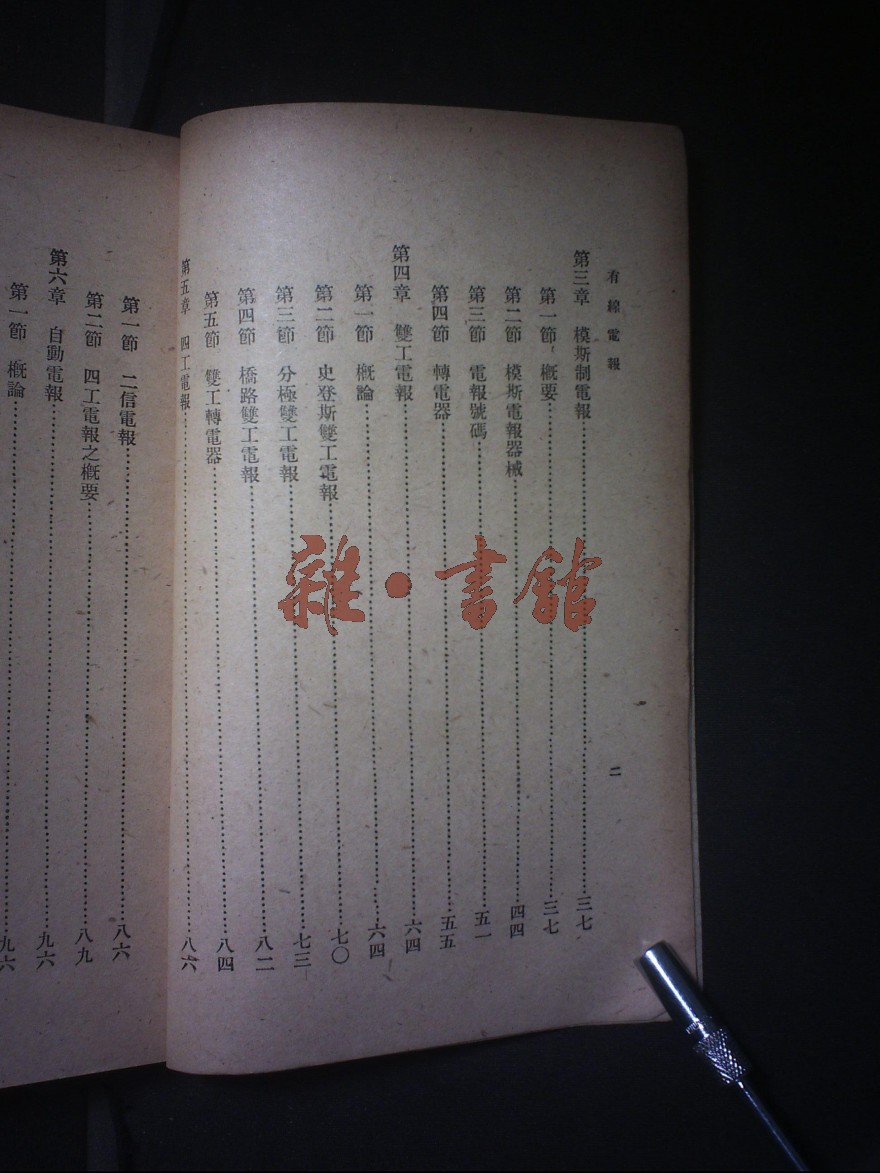 有線電報
二
第三章 模斯制電報……三七
第一節 概要……三七
第二節 模斯電報器械……四四
第三節 電報號碼……五一
第四節 轉電器……五五
第四章 雙工電報……六四
第一節 概論……六四
第二節 史登斯雙工電報……七〇
第三節 分極雙工電報……七三
第四節 橋路雙工電報……八二
第五節 雙工轉電器……八四
第五章 四工電報……八六
第一節 二信電報……八六
第二節 四工電報之概要……八九
第六章 自動電報……九六
第一節 概論……九六
雜·書館